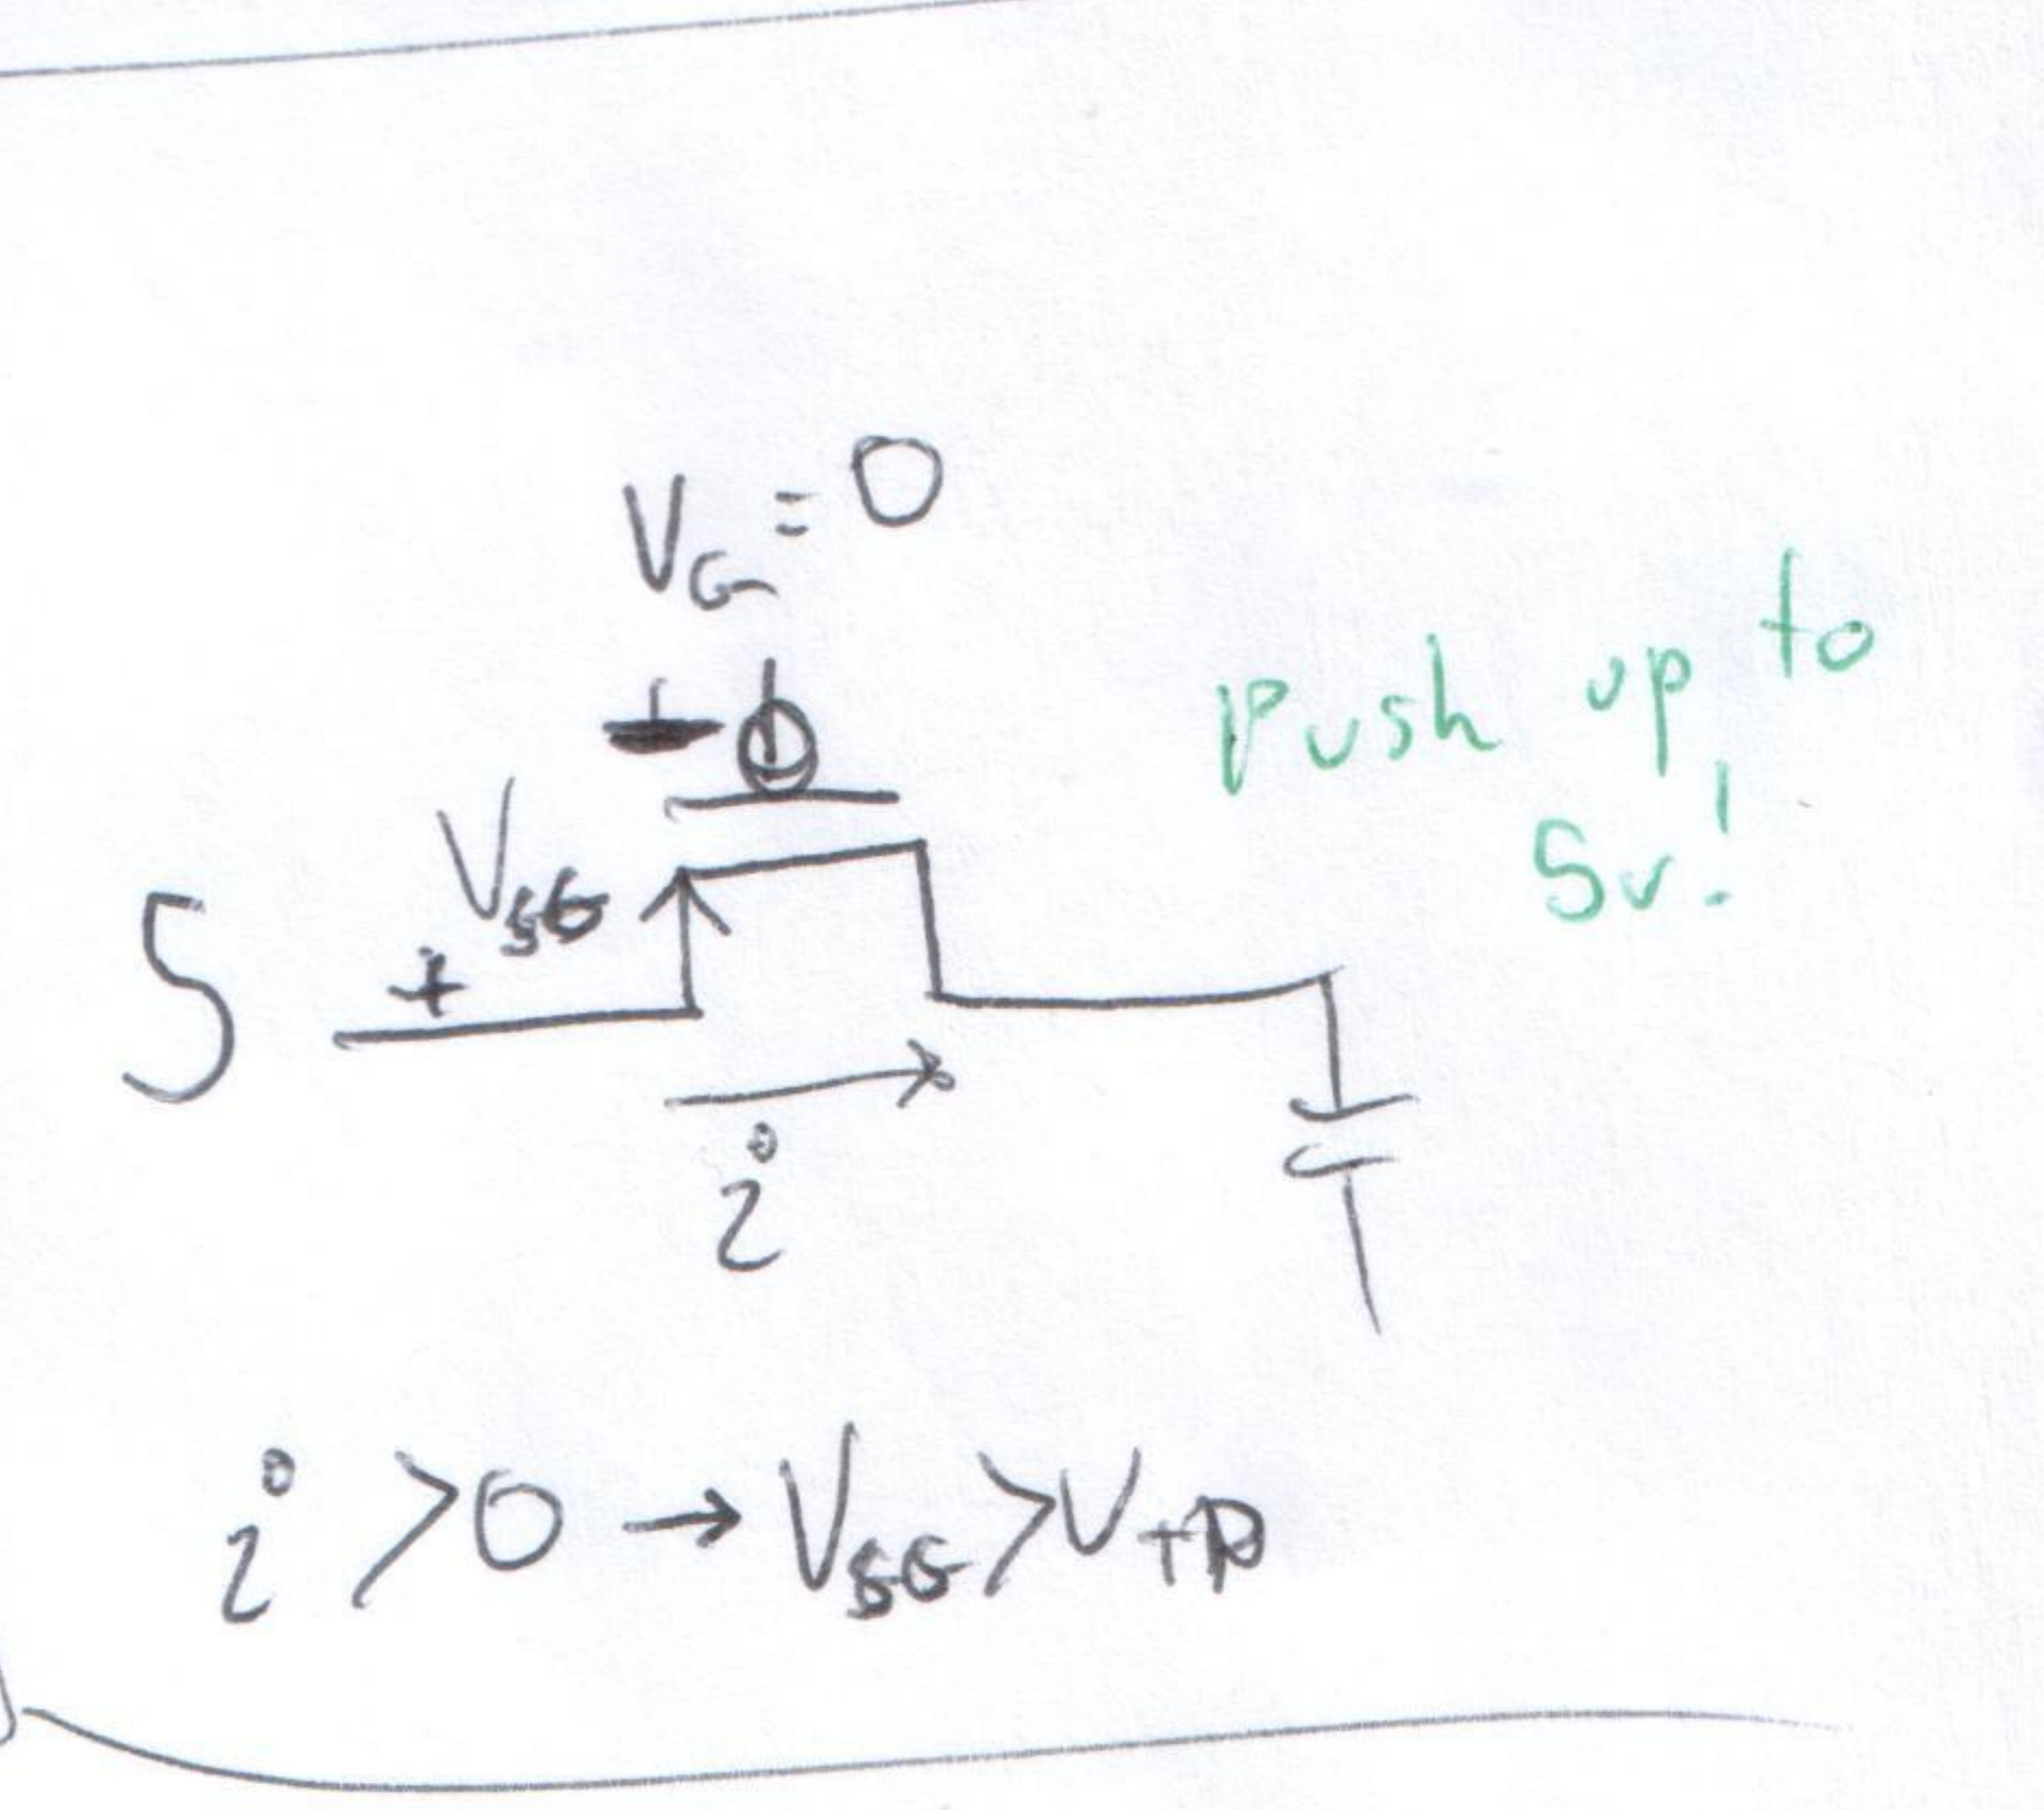 V_G = 0
Push up to
5v!
V_SG
5
+
-
i
i > 0 → V_SG > V_tp